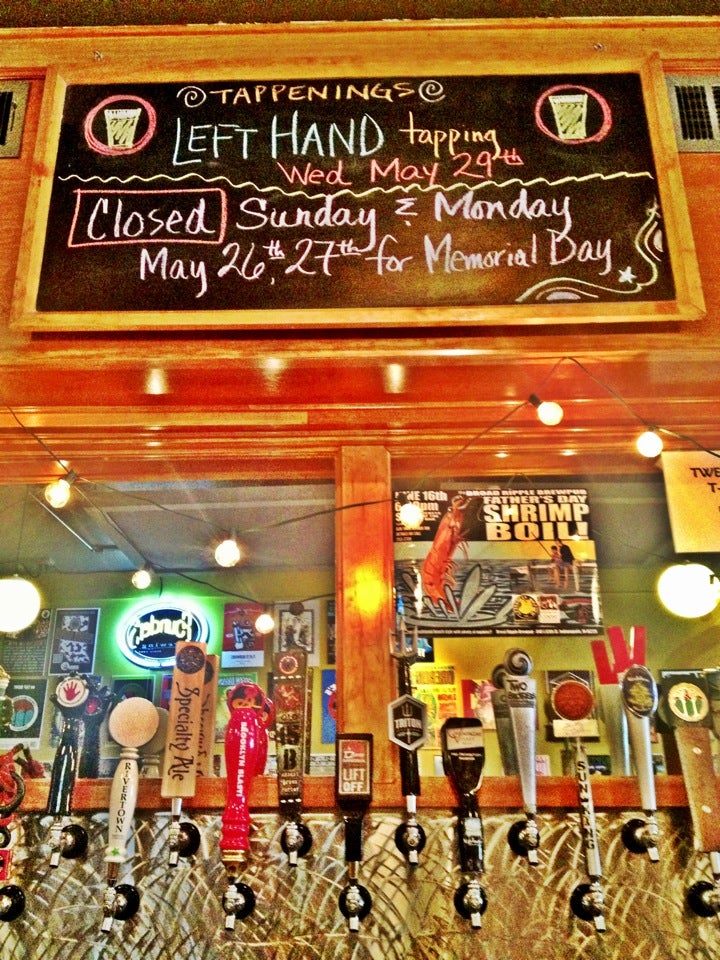 TAPPENINGS
LEFT HAND tapping
Wed May 29th
Closed Sunday & Monday
May 26th, 27th for Memorial Day
16th
BROAD RIPPLE BREWPUB
FATHER'S DAY
SHRIMP
BOIL!
TWE
T-
RIVERTOWN
Specialty Ale
BROOKLYN BLAST!
LIFT
OFF
TRITON
TWO
SUN KING